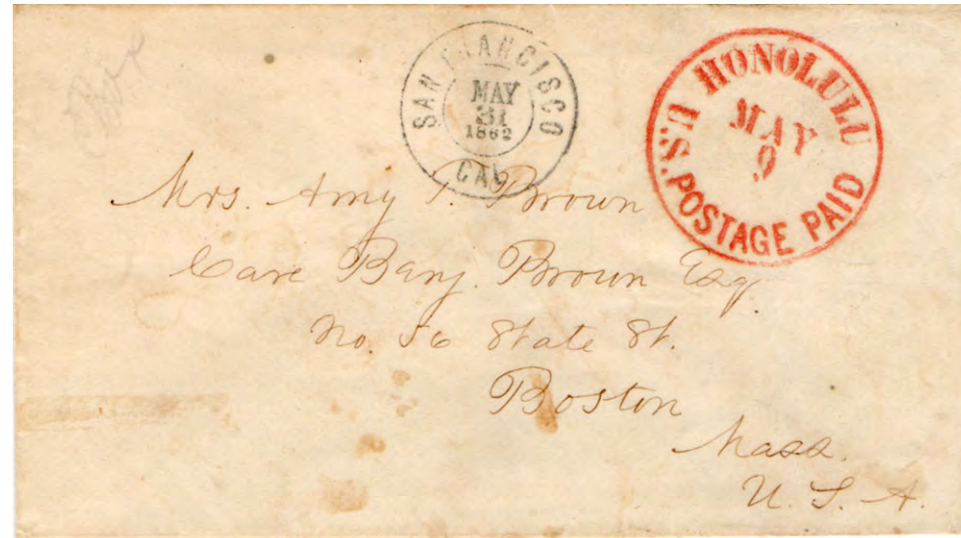 SAN FRANCISCO
MAY
31
1862
CAL
HONOLULU
MAY
9
U.S. POSTAGE PAID
Mrs. Amy P. Brown
Care Benj. Brown Esq.
No. 56 State St.
Boston
Mass.
U. S. A.